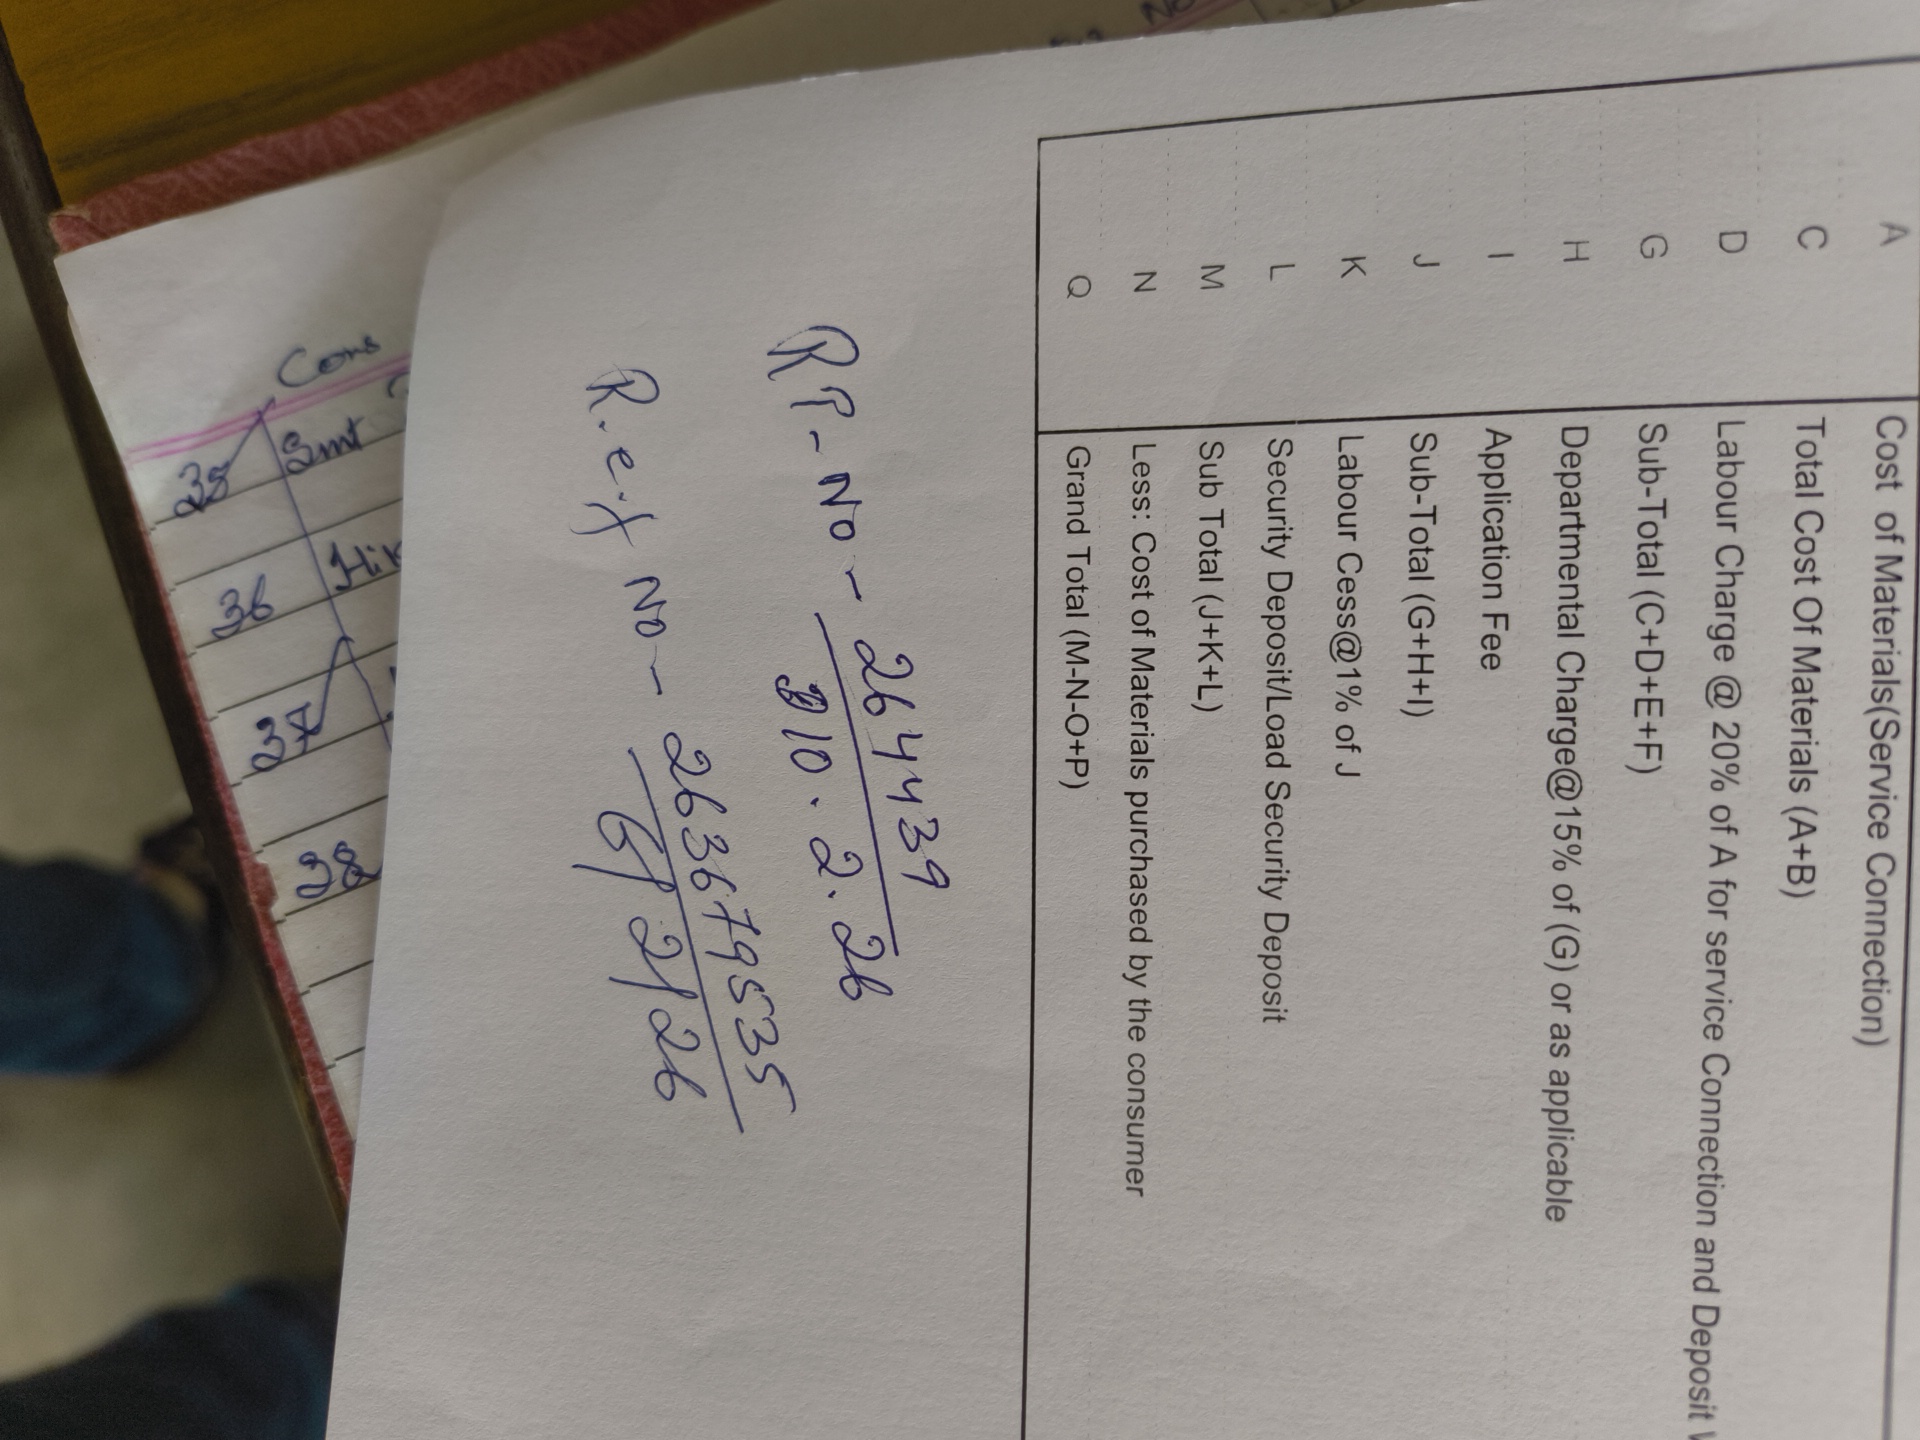 A Cost of Materials(Service Connection)
C Total Cost Of Materials (A+B)
D Labour Charge @ 20% of A for service Connection and Deposit
G Sub-Total (C+D+E+F)
H Departmental Charge@15% of (G) or as applicable
I Application Fee
J Sub-Total (G+H+I)
K Labour Cess@1% of J
L Security Deposit/Load Security Deposit
M Sub Total (J+K+L)
N Less: Cost of Materials purchased by the consumer
Q Grand Total (M-N-O+P)
RP-No- 264439
10.2.26
R.ef No- 263679535
6/2/26
Cons
35 Smt
36
37
38